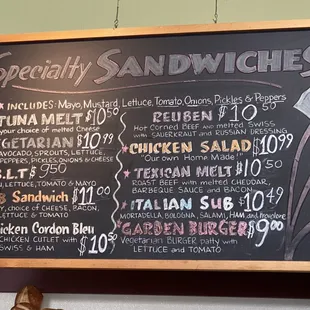 Specialty SANDWICHES
INCLUDES: Mayo, Mustard, Lettuce, Tomato, Onions, Pickles & Peppers
TUNA MELT $10.50
your choice of melted Cheese
GETARIAN $10.99
AVOCADO, SPROUTS, LETTUCE,
PEPPERS, PICKLES, ONIONS & CHEESE
B.L.T $9.50
LETTUCE, TOMATO & MAYO
Sandwich $11.00
choice of CHEESE, BACON,
LETTUCE & TOMATO
icken Cordon Bleu
CHICKEN CUTLET with
SWISS & HAM $10.50
REUBEN $10.50
Hot Corned BEEF and melted SWISS
with SAUERKRAUT and RUSSIAN DRESSING
CHICKEN SALAD $10.99
"Our own Home Made"
TEXICAN MELT $10.50
ROAST BEEF with melted CHEDDAR,
BARBEQUE SAUCE and BACON
ITALIAN SUB $10.49
MORTADELLA, BOLOGNA, SALAMI, HAM and Provolone
GARDEN BURGER $9.00
Vegetarian BURGER patty with
LETTUCE and TOMATO